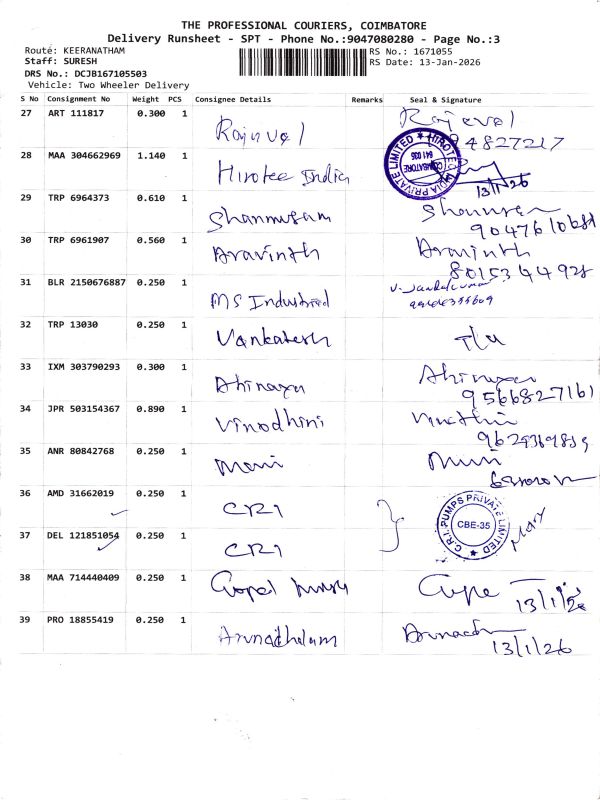 THE PROFESSIONAL COURIERS, COIMBATORE
Delivery Runsheet - SPT - Phone No.:9047080280 - Page No.:3
Route: KEERANATHAM
RS No.: 1671055
Staff: SURESH
RS Date: 13-Jan-2026
DRS No.: DCJB167105503
Vehicle: Two Wheeler Delivery
S No Consignment No Weight PCS Consignee Details Remarks Seal & Signature
27 ART 111817 0.300 1 Rajuvel
28 MAA 304662969 1.140 1 Hirotec India 13/1/26
HIROTEC INDIA PRIVATE LIMITED COIMBATORE 641 035
29 TRP 6964373 0.610 1 Shanmugam
30 TRP 6961907 0.560 1 Aravinth Aravinth
8015344928
31 BLR 2150676887 0.250 1 MS Industrial
32 TRP 13030 0.250 1 Vankatesh
33 IXM 303790293 0.300 1 Abinaya
9566827161
34 JPR 503154367 0.890 1 Vinodhini
35 ANR 80842768 0.250 1 Mani
36 AMD 31662019 0.250 1 CRI
C.R.I. PUMPS PRIVATE LIMITED CBE-35
37 DEL 121851054 0.250 1 CRI
38 MAA 714440409 0.250 1 Gopal
13/1/26
39 PRO 18855419 0.250 1 Arunachalam
13/1/26